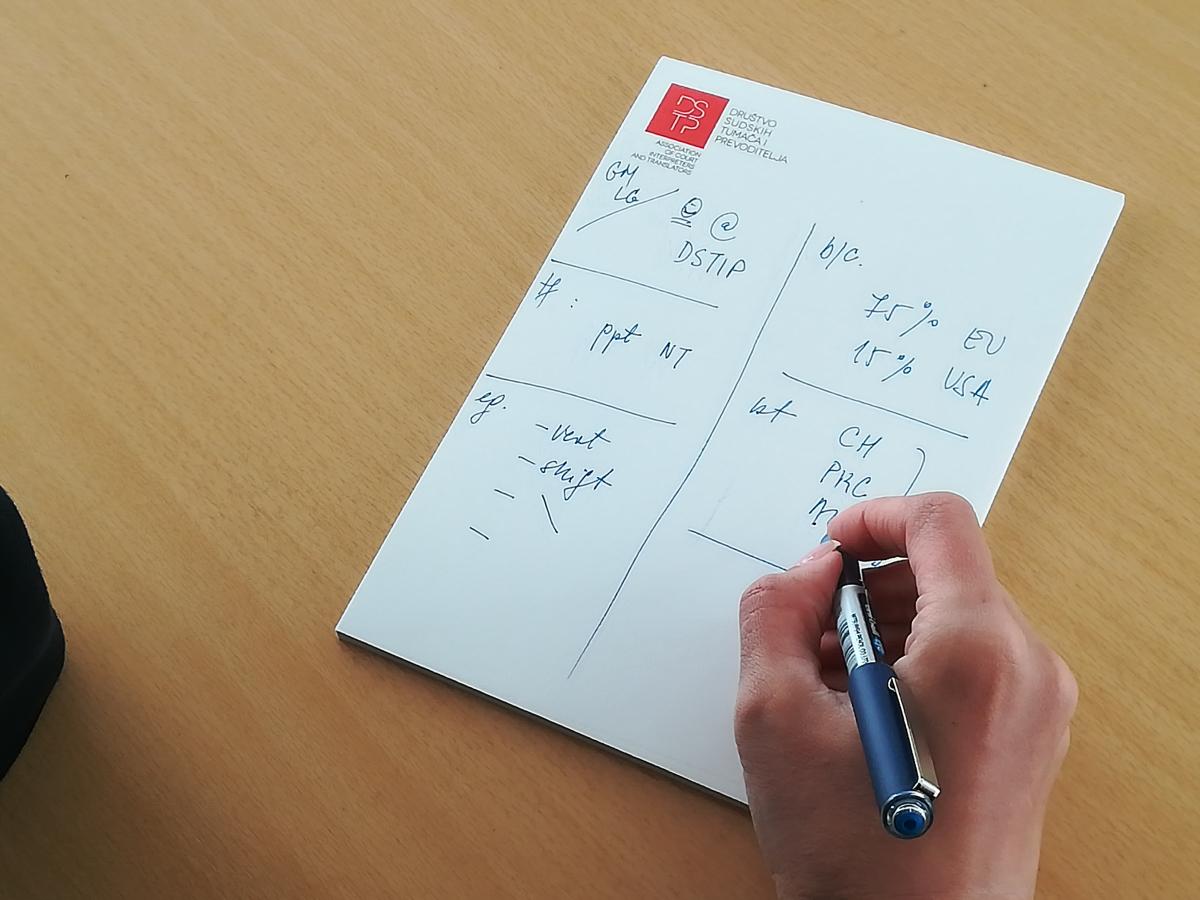 DS
TP
DRUŠTVO
SUDSKIH
TUMAČA I
PREVODITELJA
ASSOCIATION
OF COURT
INTERPRETERS
AND TRANSLATORS
GM
LG
@
DSTIP
tt :
ppt NT
eg.
- vert
- shift
-
-
b/c.
75% EU
15% USA
bt CH
PRC